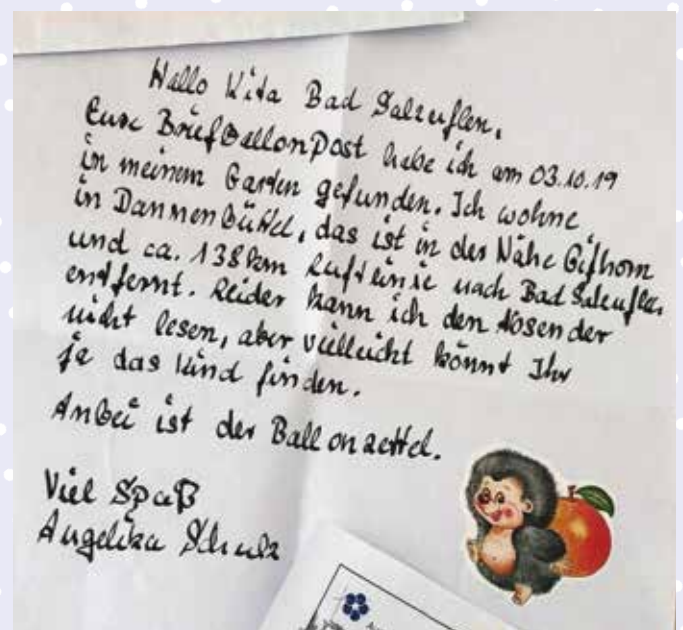 Hallo Kita Bad Salzuflen,
Eure BriefBallonPost habe ich am 03.10.19
in meinem Garten gefunden. Ich wohne
in Dannenbüttel, das ist in der Nähe Gifhorn
und ca. 138km Luftlinie nach Bad Salzuflen
entfernt. Leider kann ich den Absender
nicht lesen, aber vielleicht könnt Ihr
je das Kind finden.
Anbei ist der Ballonzettel.
Viel Spaß
Angelika Schulz